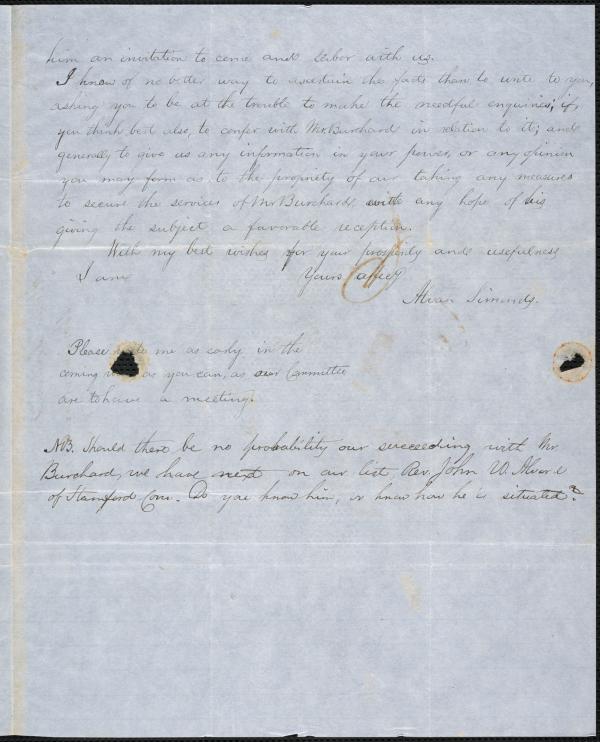 him an invitation to come and labor with us.
I know of no better way to ascertain the facts than to write to you,
asking you to be at the trouble to make the needful enquiries; if
you think best also, to confer with Mr. Burchard in relation to it; and
generally to give us any information in your power, or any opinion
you may form as to the propriety of our taking any measures
to secure the services of Mr Burchard, with any hope of his
giving the subject a favorable reception.
With my best wishes for your prosperity and usefulness
I am Yours affecty
Alvan Simonds.
Please me as early in the
coming as you can, as our Committee
are to have a meeting.
NB. Should there be no probability our succeeding with Mr
Burchard, we have next on our list, Rev. John W. Alvord
of Stamford Con. Do you know him, or know how he is situated?